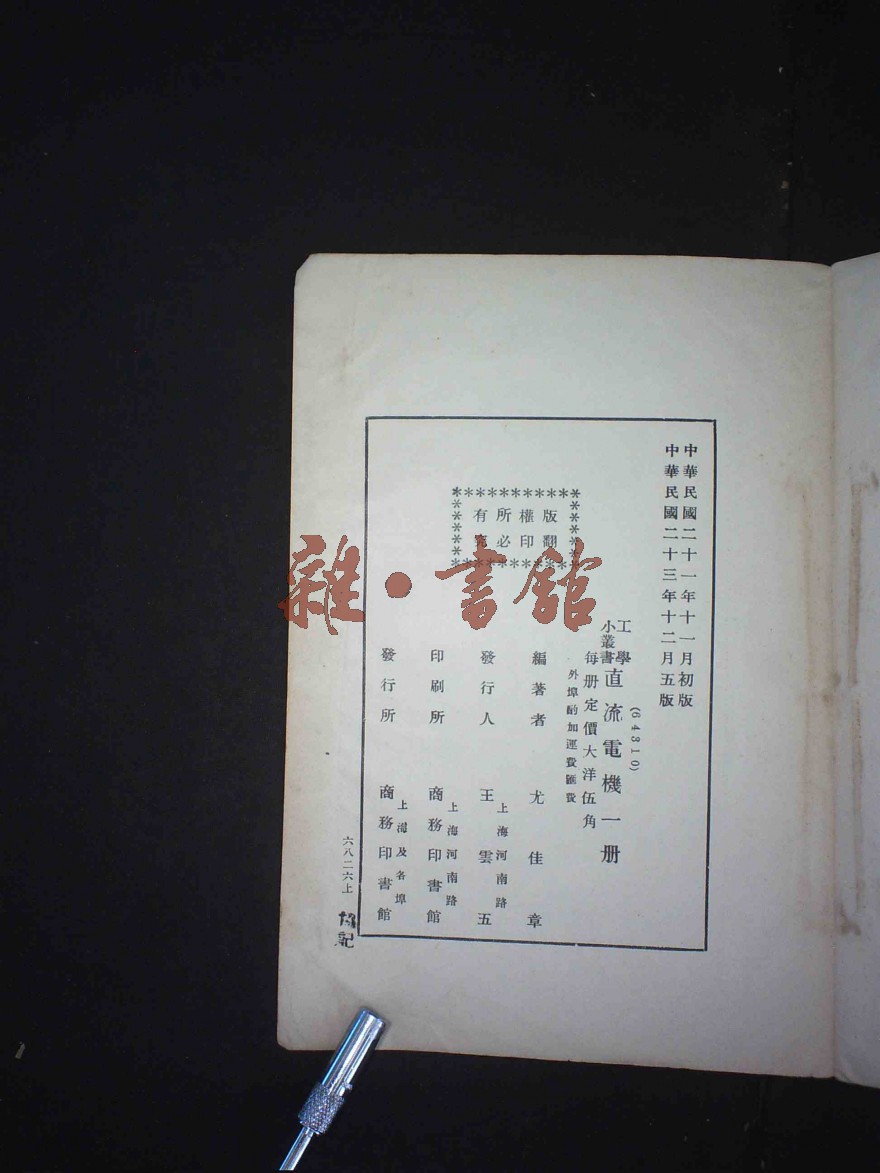 中華民國二十一年十一月初版
中華民國二十三年十二月五版
(64310)
工學
小叢書
直流電機一册
每册定價大洋伍角
外埠酌加運費匯費
版權所有
翻印必究
編著者 尤佳章
上海河南路
發行人 王雲五
上海河南路
印刷所 商務印書館
上海及各埠
發行所 商務印書館
六八二六上
雜·書館